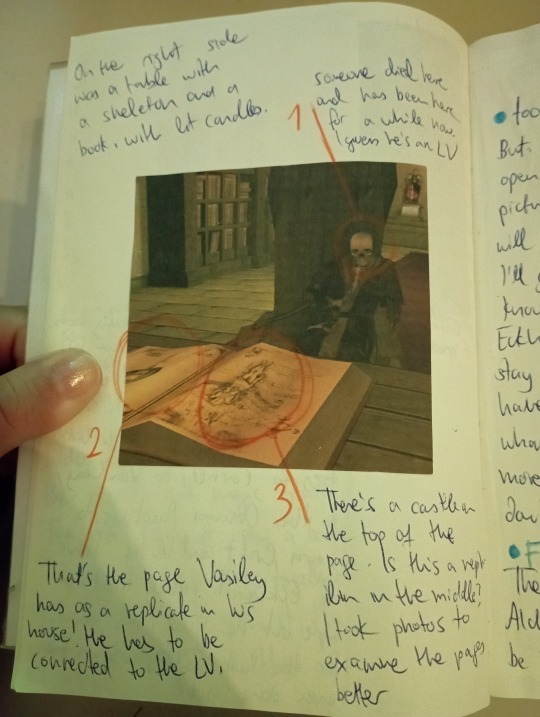 On the right side
was a table with
a skeleton and a
book, with lit candles.
someone died here
and has been here
for a while now.
I guess he's an LV
1
2
3
That's the page Vasiley
has as a replicate in his
house! He has to be
connected to the LV.
There's a castle on
the top of the
page. Is this a rept
ilian in the middle?
I took photos to
examine the pages
better
But
open
pictu
will
I'll
know
Eckh
stay
have
what
more
The
Ald
be